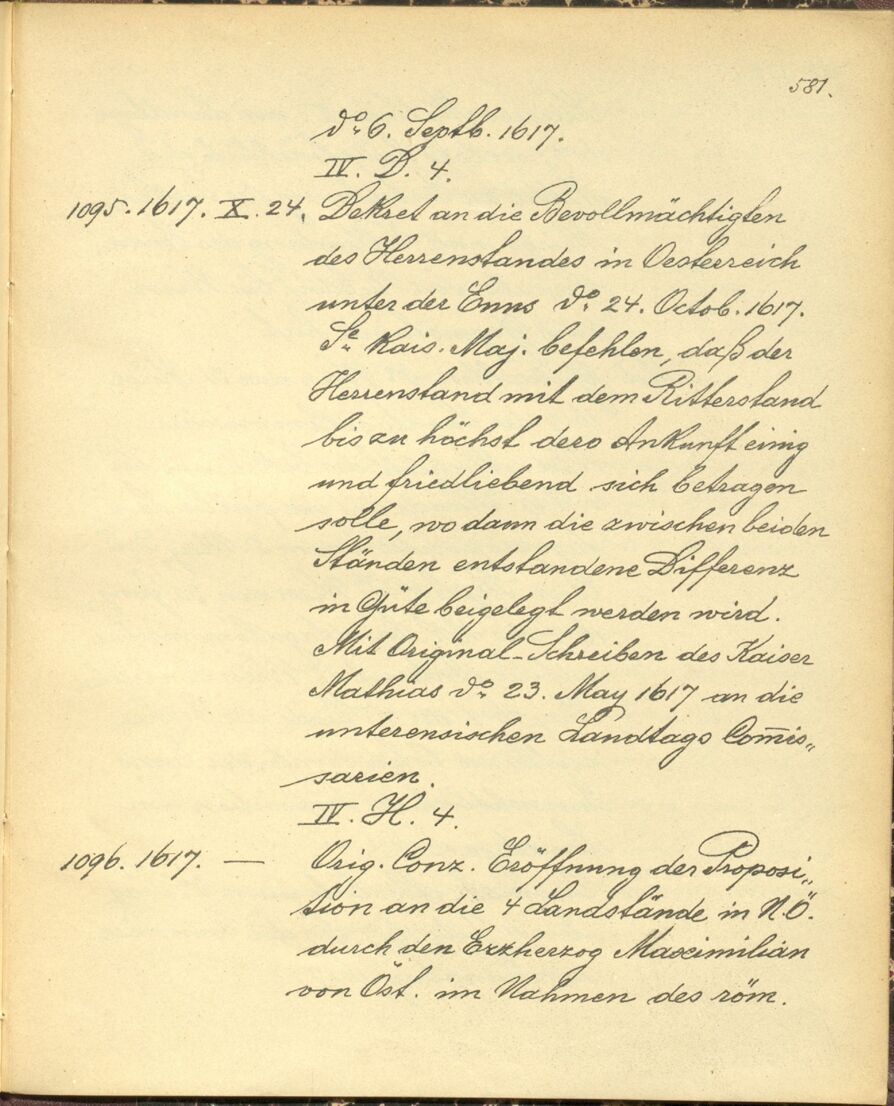 581.
do. 6. Septb. 1617.
IV. D. 4.
1095. 1617. X. 24. Dekret an die Bevollmächtigten
des Herrenstandes in Oesterreich
unter der Enns do. 24. Octob. 1617.
Se. Kais. Maj. befehlen, daß der
Herrenstand mit dem Ritterstand
bis zu höchst dero Ankunft einig
und friedliebend sich betragen
solle, wo dann die zwischen beiden
Ständen entstandene Differenz
in Güte beigelegt werden wird.
Mit Original-Schreiben des Kaiser
Mathias do. 23. May 1617 an die
unterensischen Landtags Com̄is„
sarien.
IV. H. 4.
1096. 1617. — Orig. Conz. Eröffnung der Proposi„
tion an die 4 Landstände in N.Ö.
durch den Erzherzog Maximilian
von Öst. im Nahmen des röm.